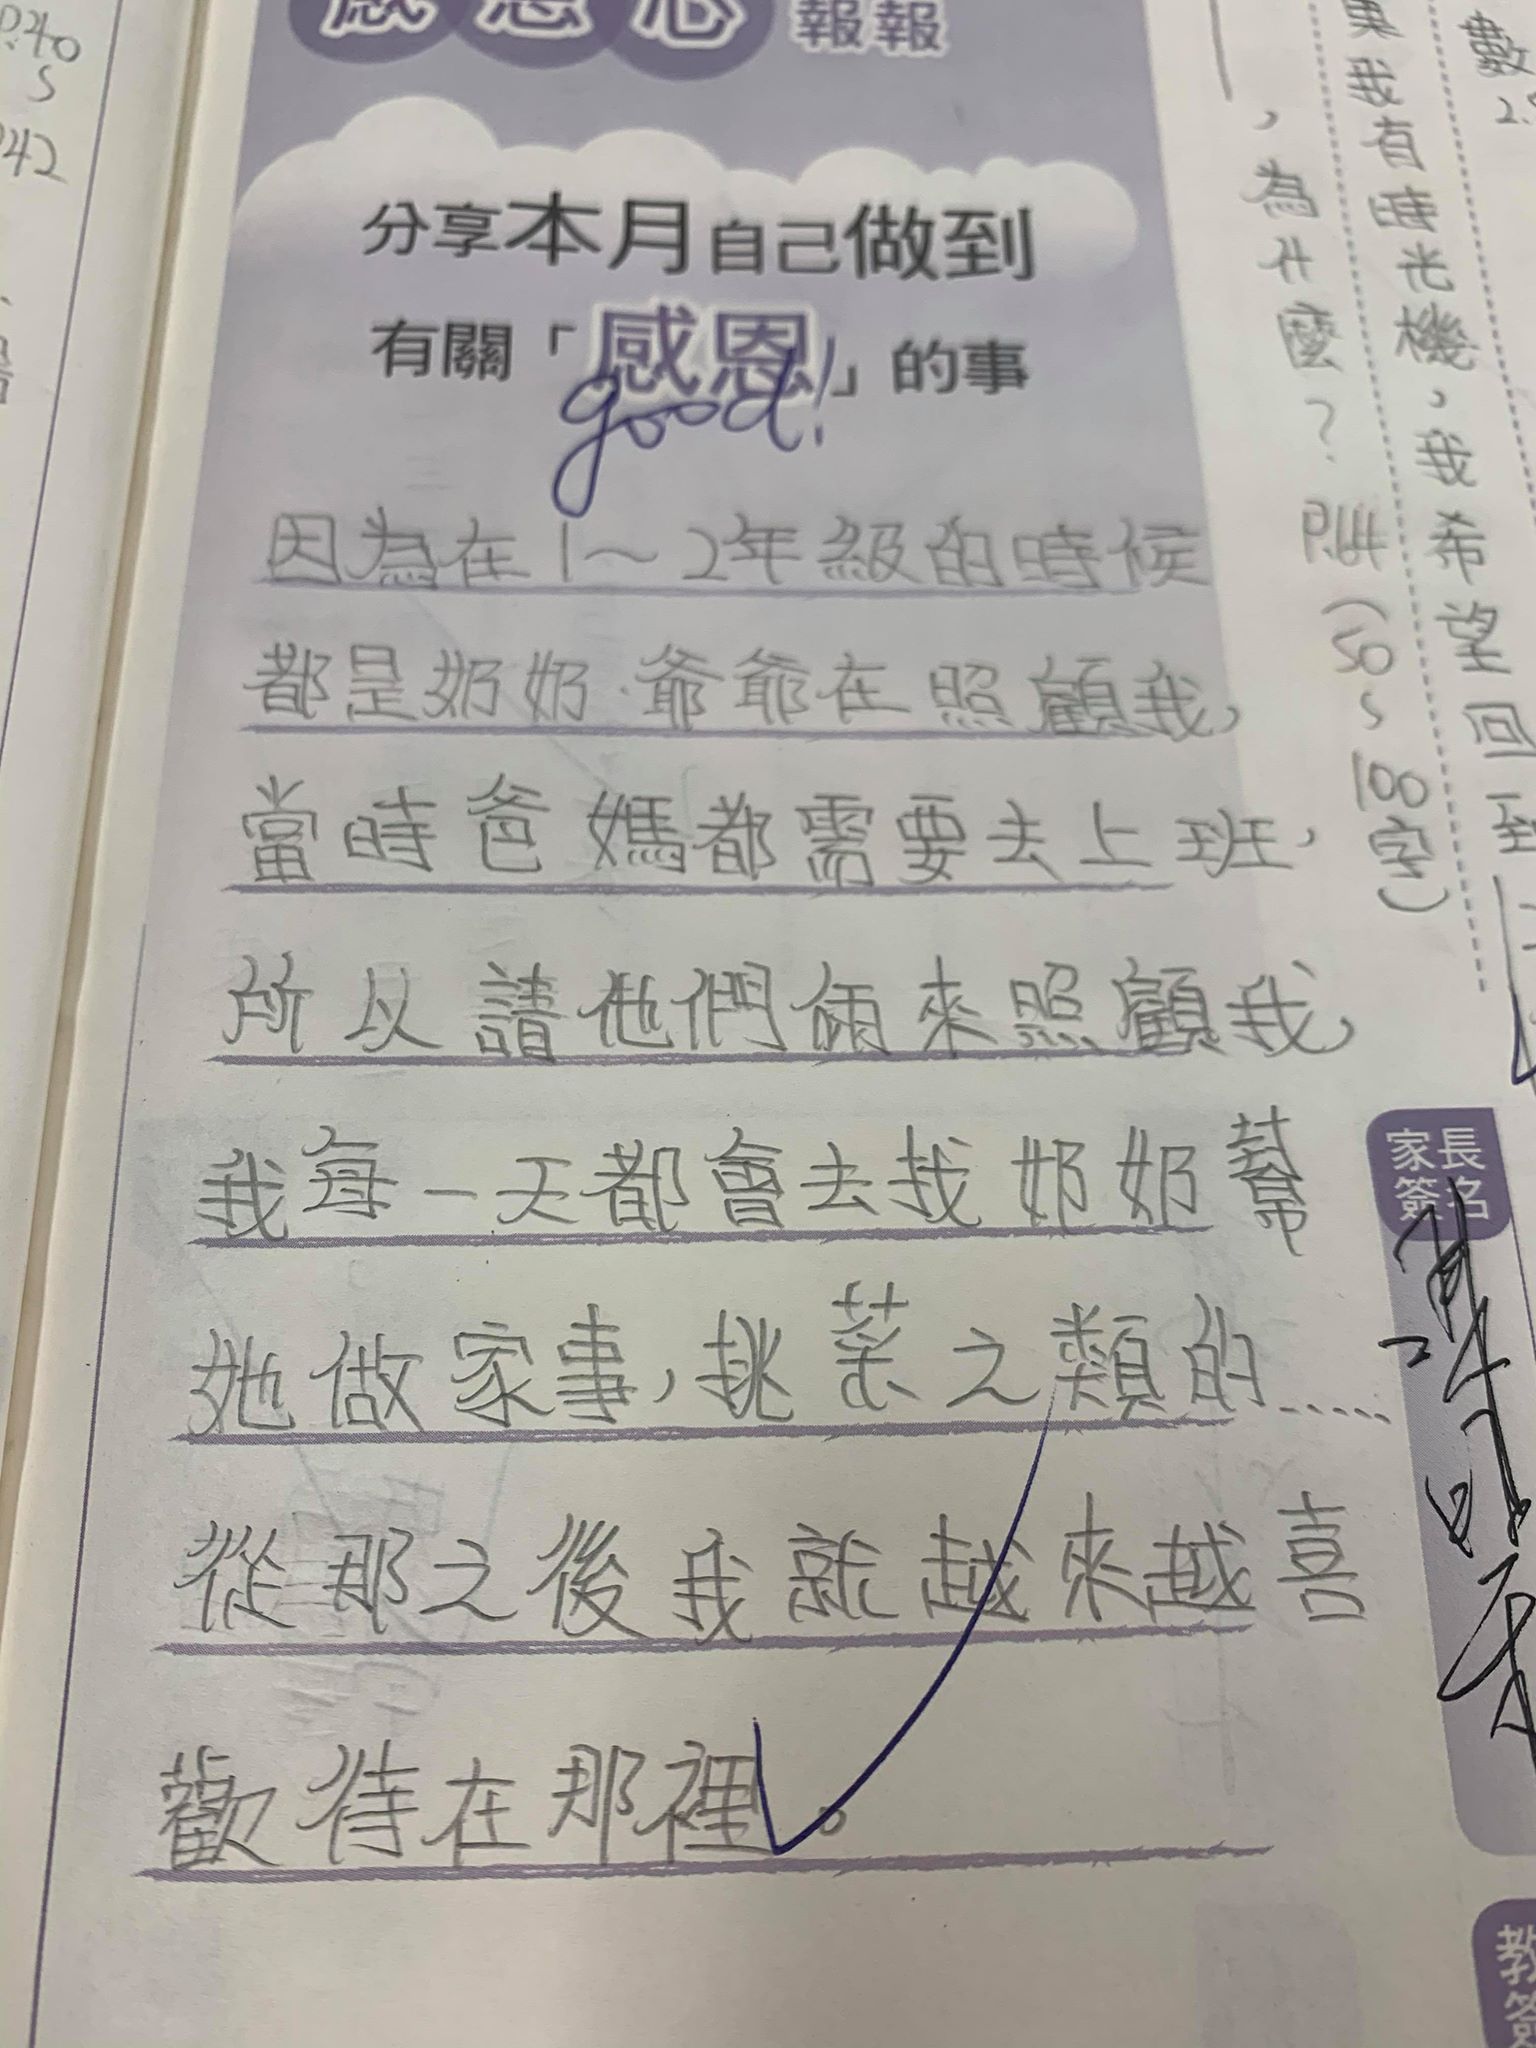 感恩心報報
分享本月自己做到
有關「感恩」的事
good!
因為在1～2年級的時候
都是奶奶.爺爺在照顧我,
當時爸媽都需要去上班,
所以請他們倆來照顧我,
我每一天都會去找奶奶幫
她做家事,挑菜之類的.....
從那之後我就越來越喜
歡待在那裡。
我有時光機,我希望回到
,為什麼?P.44(50~100字)
P.40
~
42
數
家長
簽名
教
簽